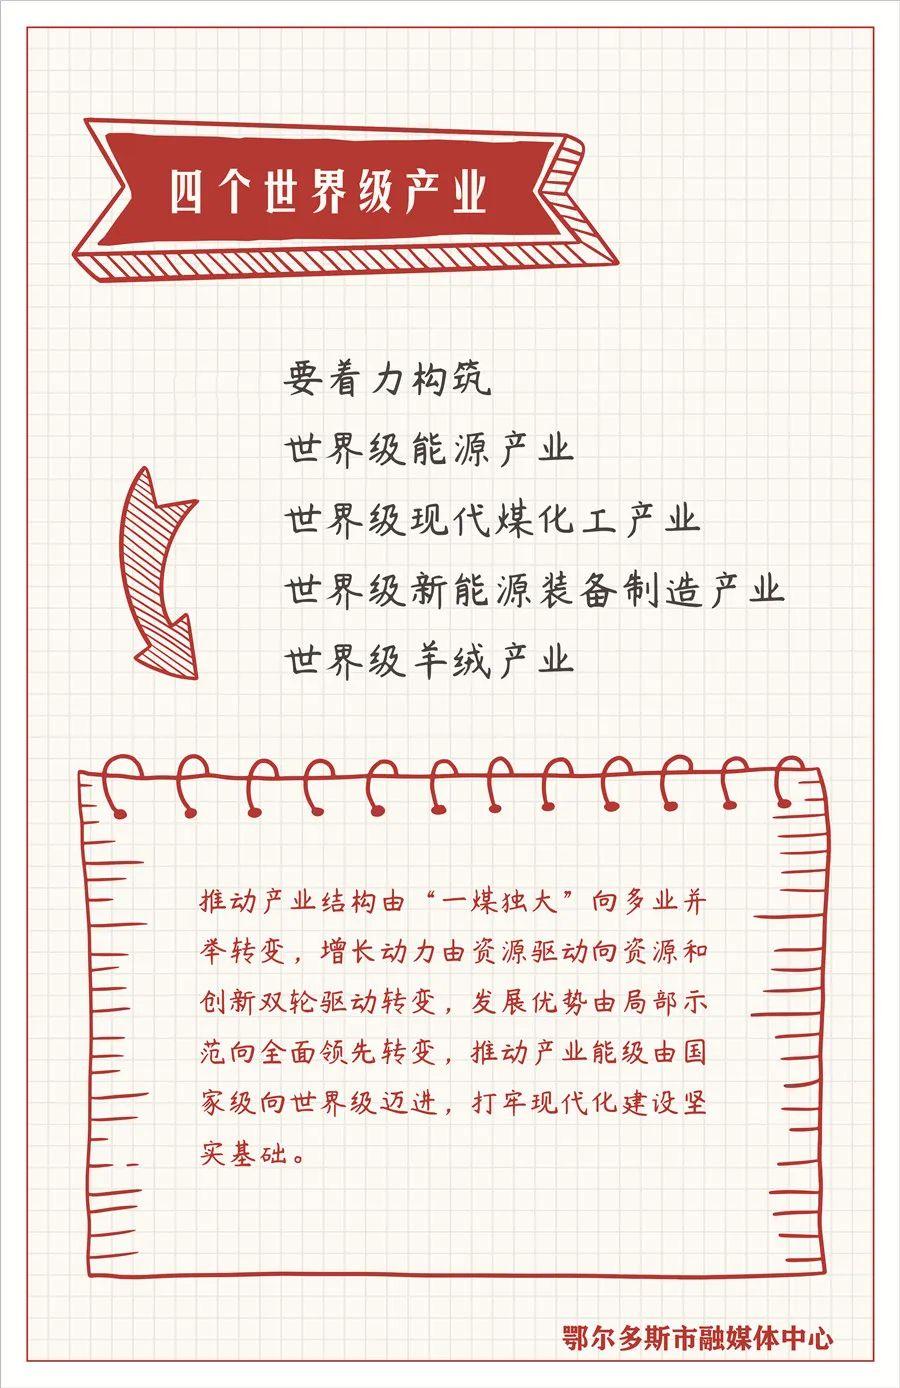 四个世界级产业
要着力构筑
世界级能源产业
世界级现代煤化工产业
世界级新能源装备制造产业
世界级羊绒产业
推动产业结构由“一煤独大”向多业并
举转变，增长动力由资源驱动向资源和
创新双轮驱动转变，发展优势由局部示
范向全面领先转变，推动产业能级由国
家级向世界级迈进，打牢现代化建设坚
实基础。
鄂尔多斯市融媒体中心